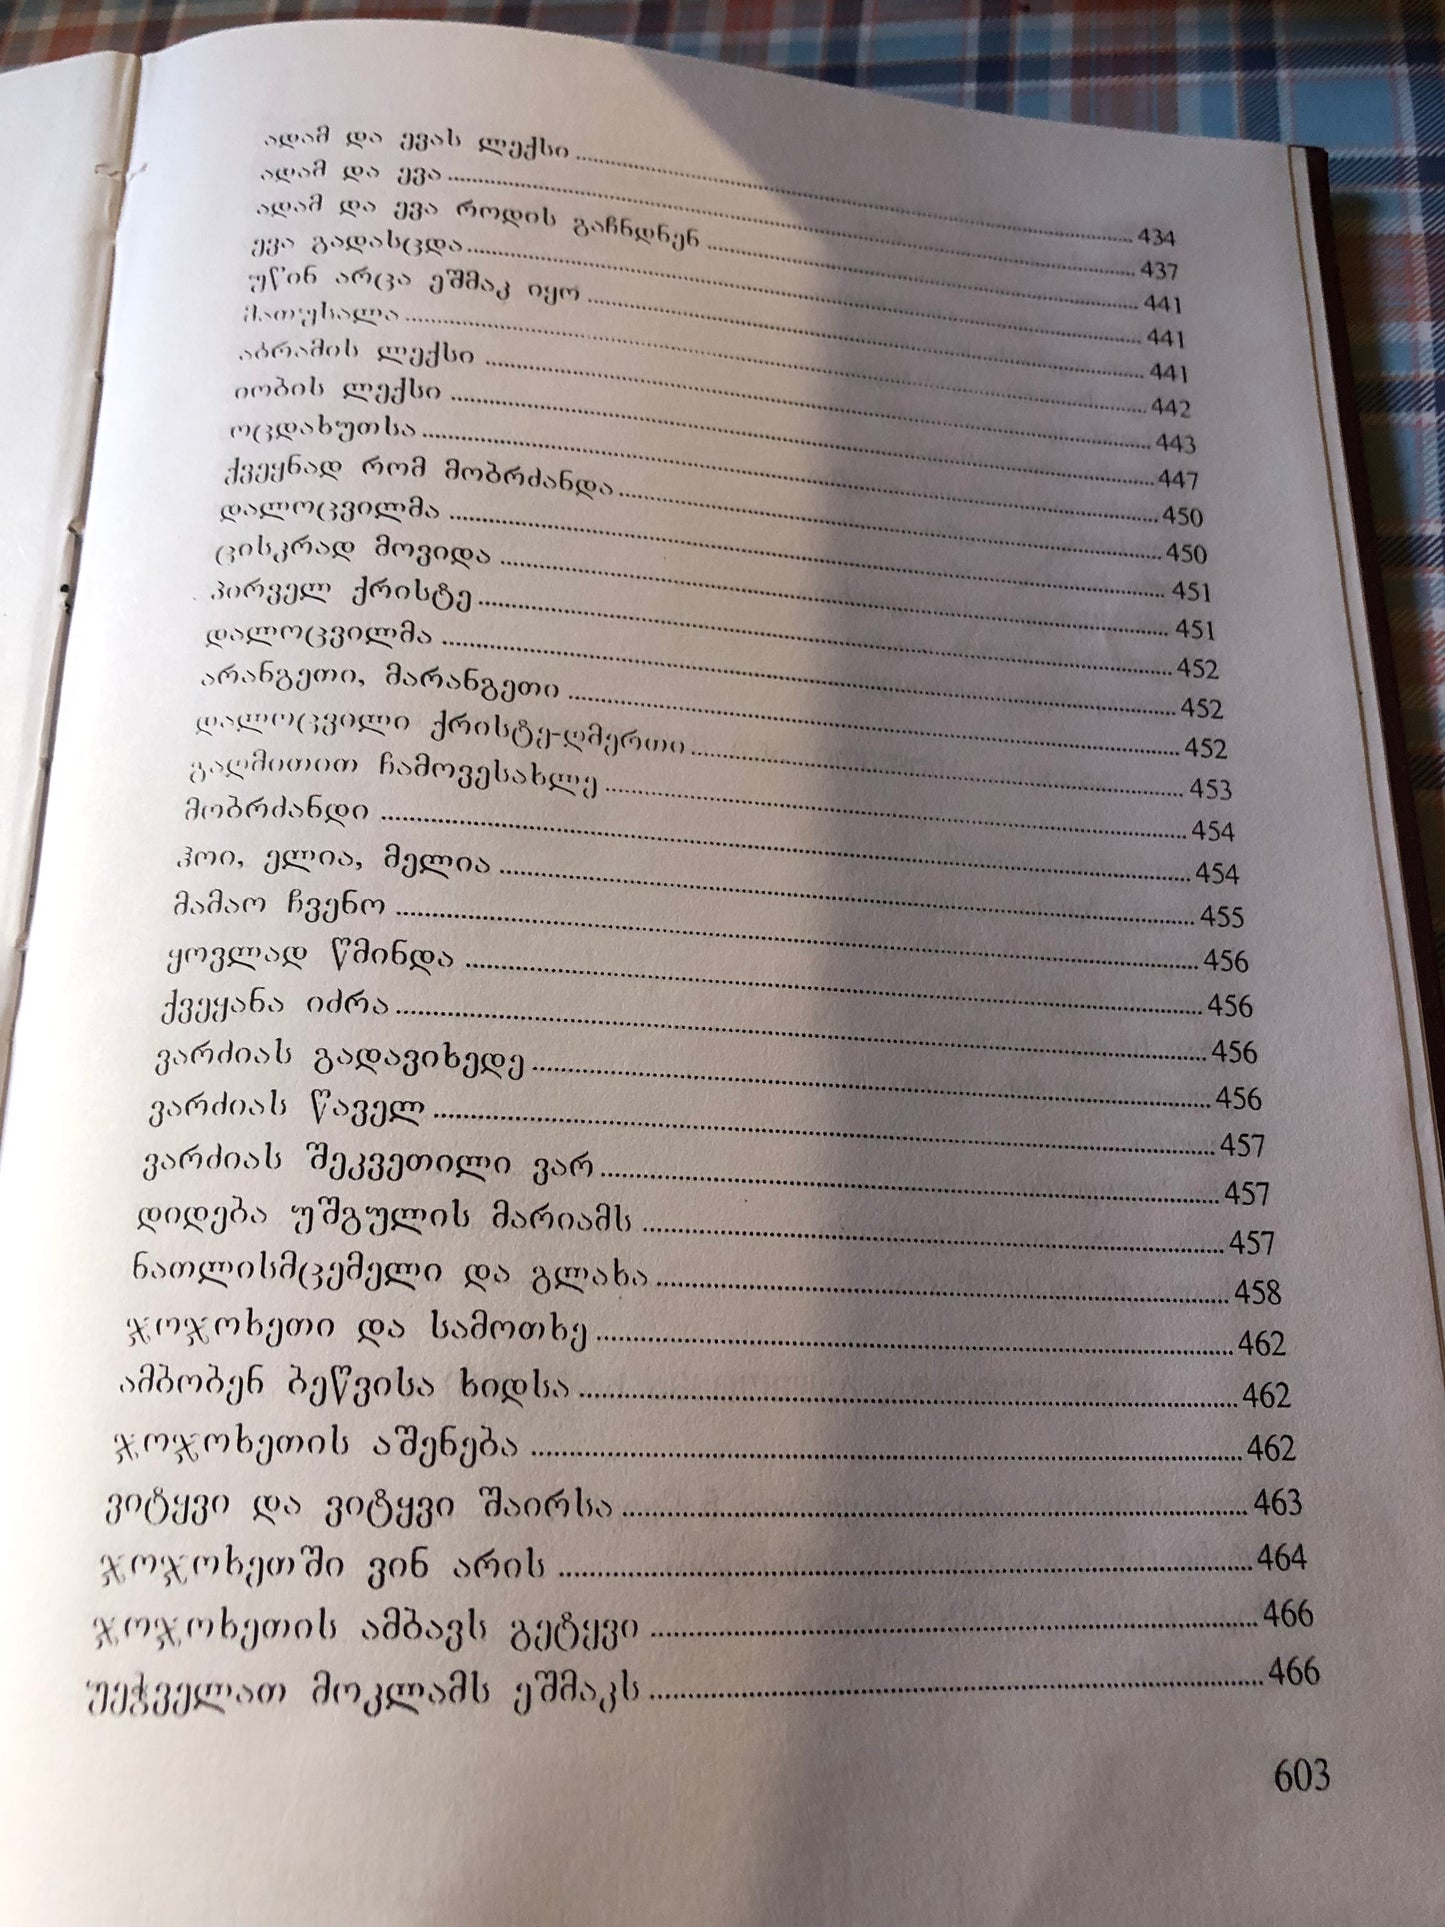 ადამ და ევას ლექსი ........ 434
ადამ და ევა ........ 437
ადამ და ევა როდის გაჩნდნენ ........ 441
ევა გადასცდა ........ 441
უწინ არცა ეშმაკ იყო ........ 441
მათუსალა ........ 442
აბრამის ლექსი ........ 443
იობის ლექსი ........ 447
ოცდახუთსა ........ 450
ქვეყნად რომ მობრძანდა ........ 450
დალოცვილმა ........ 451
ცისკრად მოვიდა ........ 451
პირველ ქრისტე ........ 452
დალოცვილმა ........ 452
არანგეთი, მარანგეთი ........ 452
დალოცვილი ქრისტე-ღმერთი ........ 453
გაღმითით ჩამოვესახლე ........ 454
მობრძანდი ........ 454
ჰოი, ელია, მელია ........ 455
მამაო ჩვენო ........ 456
ყოვლად წმინდა ........ 456
ქვეყანა იძრა ........ 456
ვარძიას გადავიხედე ........ 456
ვარძიას წაველ ........ 457
ვარძიას შეკვეთილი ვარ ........ 457
დიდება უშგულის მარიამს ........ 457
ნათლისმცემელი და გლახა ........ 458
ჯოჯოხეთი და სამოთხე ........ 462
ამბობენ ბეწვისა ხიდსა ........ 462
ჯოჯოხეთის აშენება ........ 462
ვიტყვი და ვიტყვი შაირსა ........ 463
ჯოჯოხეთში ვინ არის ........ 464
ჯოჯოხეთის ამბავს გეტყვი ........ 466
უეჭველათ მოკლამს ეშმაკს ........ 466
603